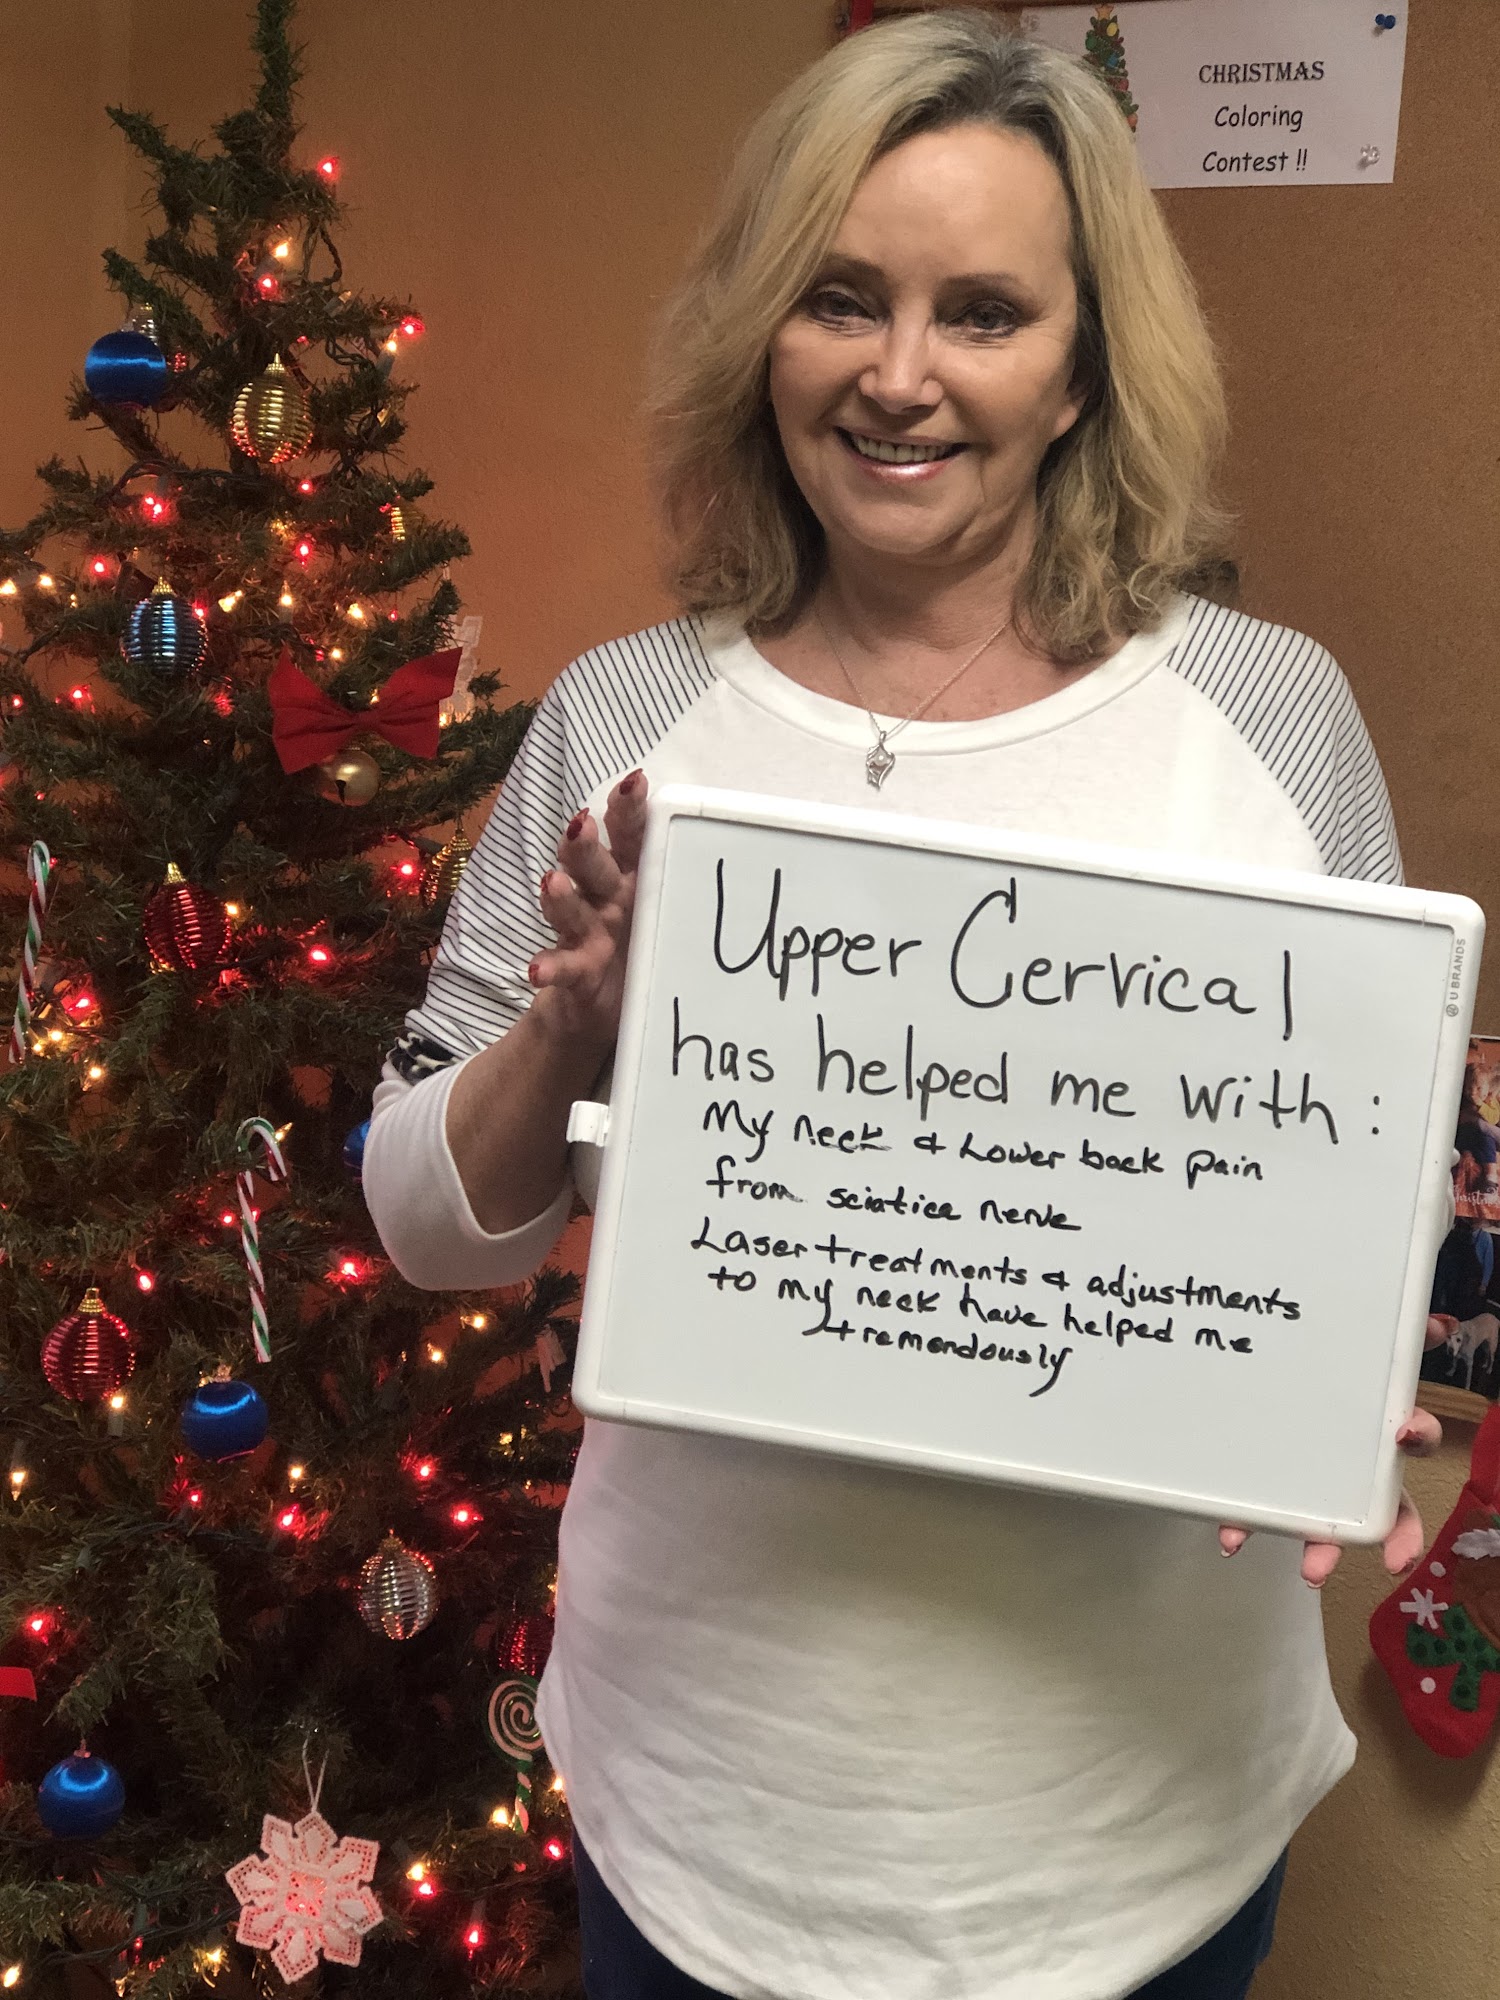 CHRISTMAS
Coloring
Contest !!
Upper Cervical
has helped me with :
My neck & Lower back pain
from sciatica nerve
Laser treatments & adjustments
to my neck have helped me
tremendously
U BRANDS